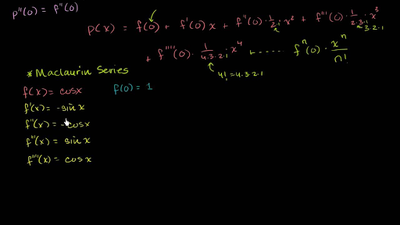 p''(0) = f''(0)
p(x) = f(0) + f'(0) x + f''(0)·1/2 x² + f'''(0)·1/2·3·1 x³
2·3·2·1
+ f''''(0)·1/4·3·2·1 x⁴ + ------ fⁿ(0)·xⁿ/n!
4! = 4·3·2·1
* Maclaurin Series
f(x) = cosx f(0) = 1
f'(x) = -sinx
f''(x) = -cosx
f'''(x) = sinx
f''''(x) = cosx